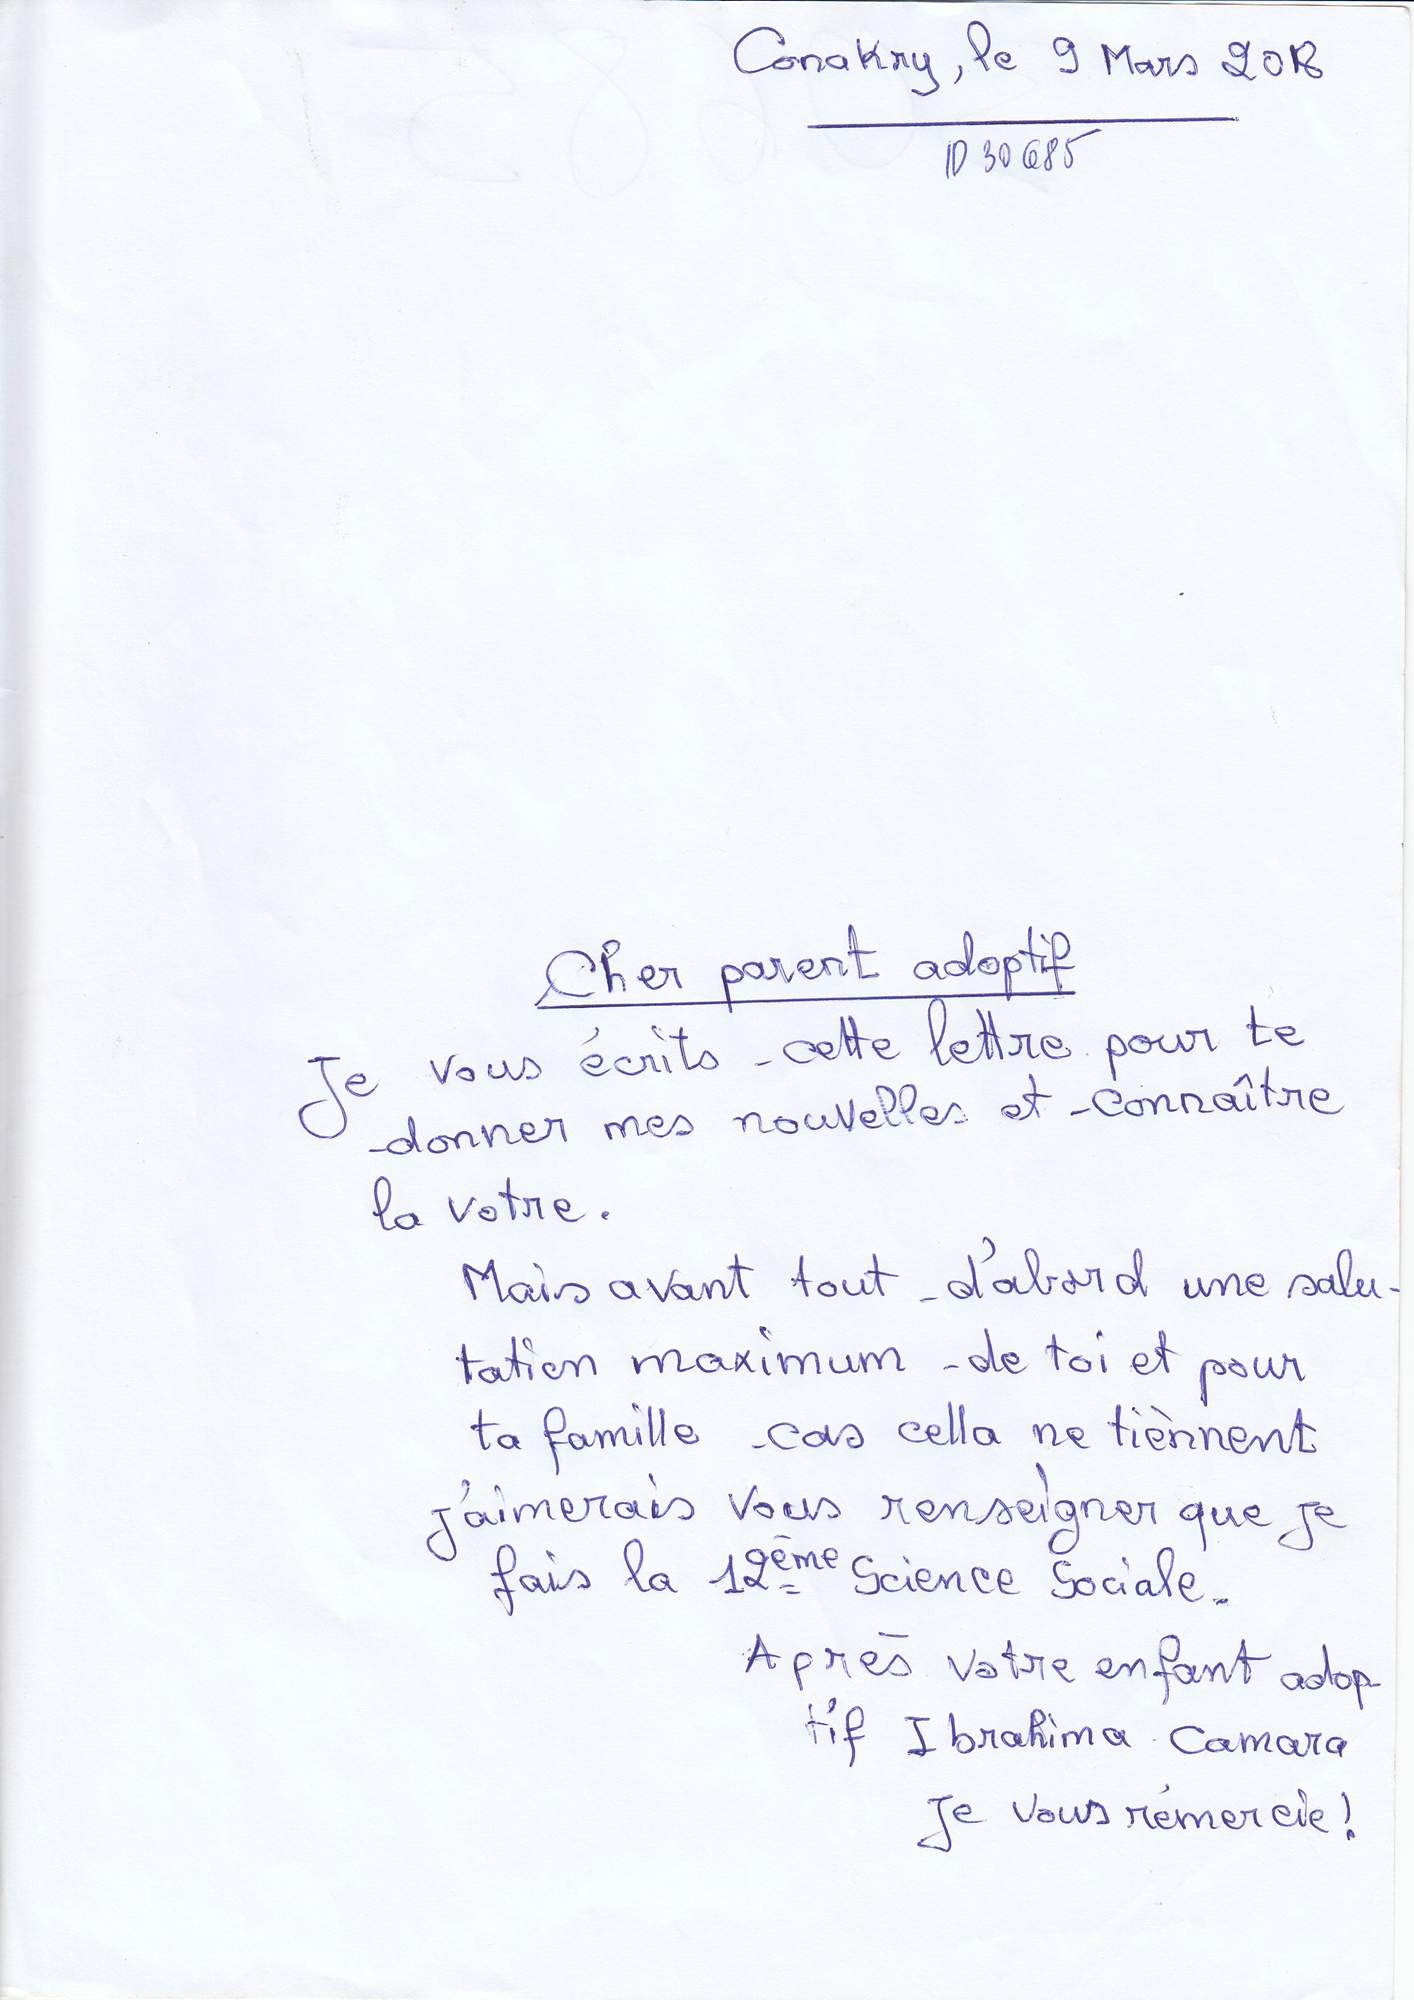 Conakry, le 9 Mars 2018
ID 30685
Cher parent adoptif
Je vous écrits cette lettre pour te
donner mes nouvelles et connaître
la votre.
Mais avant tout d'abord une salu-
tation maximum de toi et pour
ta famille cas cella ne tiènnent
j'aimerais vous renseigner que je
fais la 12ème Science Sociale.
Après votre enfant adop-
tif Ibrahima Camara
Je vous rémercie!